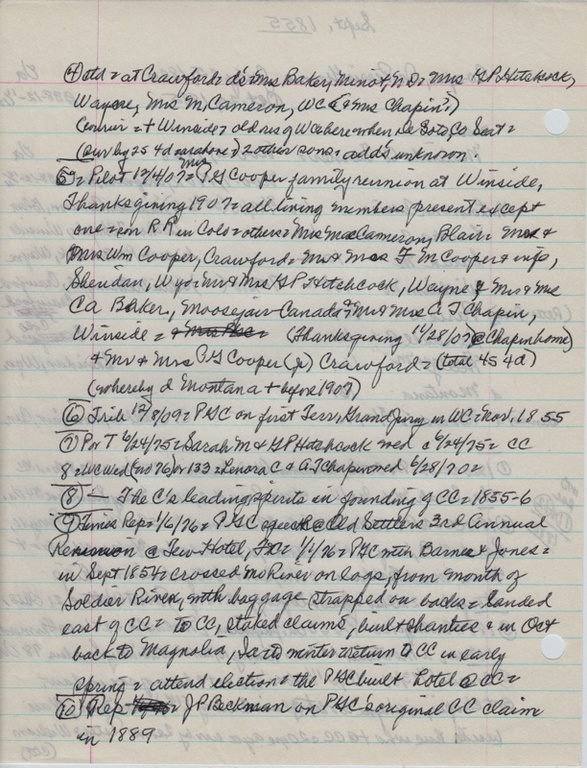 ④ atd = at Crawford = d's = Mrs Baker, Minot, N.D. = Mrs G.P. Hitchcock,
Wayne, Mrs M. Cameron, WC (& Mrs Chapin?)
Courier = + Winside = old res of WC here when De Soto Co Seat =
(Sur by 2s 4d = 2 other sons = add's unknown.
⑤ = Pilot 12/4/07 = Mrs PG Cooper family reunion at Winside,
Thanksgiving 1907 = all living members present except
one = on RR in Colo = others = Mrs Mac Cameron, Blair = Mr &
Mrs Wm Cooper, Crawford = Mr & Mrs F M Cooper & info,
Sheridan, Wyo = Mr & Mrs G P Hitchcock, Wayne & Mr & Mrs
CA Baker, Moosejaw - Canada & Mr & Mrs A T Chapin,
Winside = (Thanksgiving 11/28/07 @ Chapin home)
& Mr & Mrs PG Cooper (Jr) Crawford = (total 4s 4d)
(whereby d Montana + before 1907)
⑥ Trib 12/8/09 = PGC on first Terr, Grand Jury in WC = Nov. 1855
⑦ Por T 6/24/75 = Sarah M & GP Hitchcock wed c 6/24/75 = CC
8 = WC Wed (no 76) or 133 = Lenora C & AT Chapin wed 6/28/70 =
⑧ — The C's leading spirits in founding of CC = 1855-6
⑨ Times Rep = 1/6/76 = PGC speech @ Old Settlers 3rd Annual
Reunion @ Tew Hotel, FC = 1/1/76 = PGC with Barnes & Jones =
in Sept 1854 = crossed Mo River on logs, from mouth of
Soldier River, with baggage strapped on backs = landed
east of CC = to CC, staked claims, built shanties & in Oct
back to Magnolia, Ia to winter = return to CC in early
spring = attend election = the PGC built hotel @ CC =
⑩ Rep = JP Beckman on PGC's original CC claim
in 1889